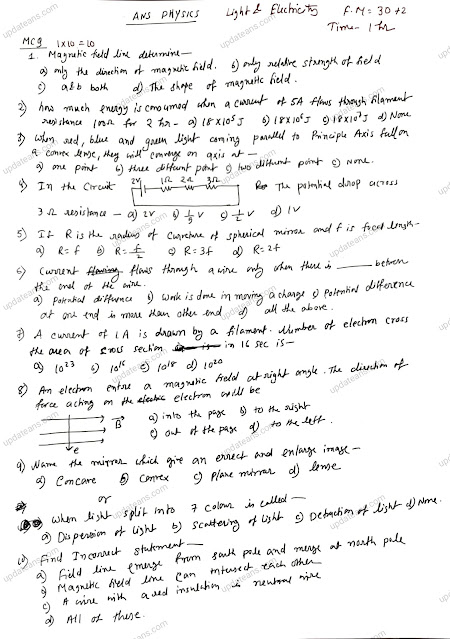 ANS PHYSICS Light & Electricity F.M = 30+2
Time - 1 hr
MCQ 1x10 = 10
1. Magnetic field line determine—
a) only the direction of magnetic field. b) only relative strength of field
c) a&b both d) The shape of magnetic field.
2) how much energy is consumed when a current of 5A flows through filament
resistance 100Ω for 2 hr - a) 18x10⁵ J b) 18x10⁶ J c) 18x10⁷ J d) None
3) When red, blue and green light coming parallel to Principle Axis fall on
a convex lense, they will converge on axis at —
a) one point b) three diffrent point c) two diffrent point d) None.
4) In the Circuit 2V 1Ω 2Ω 3Ω The potential drop across
3Ω resistance - a) 2V b) V c) V d) 1V
5) If R is the radius of Curvature of spherical mirror and f is focal length-
a) R = f b) R = f/2 c) R = 3f d) R = 2f
6) Current flows through a wire only when there is ____ between
the end of the wire.
a) potential diffrence b) Work is done in moving a charge c) Potential difference
at one end is more than other end. d) all the above.
7) A current of 1A is drawn by a filament. Number of electron cross
the area of cross section in 16 sec is—
a) 10²³ b) 10¹⁶ c) 10¹⁸ d) 10²⁰
8) An electron entre a magnetic field at right angle. The direction of
force acting on the electron will be
B
a) into the page b) to the right
c) out of the page d) to the left.
e
9) Name the mirror which give an errect and enlarge image—
a) Concave b) Convex c) Plane mirror d) lense
or
When light split into 7 colour is called—
a) Dispersion of light b) Scattering of light c) Detraction of light d) None.
10) Find Incorrect statement—
a) Field line emerge from south pole and merge at north pole
b) Magnetic field line can intersect each other
c) A wire with a red insulation is neutral wire
d) All of these.
updateans.com